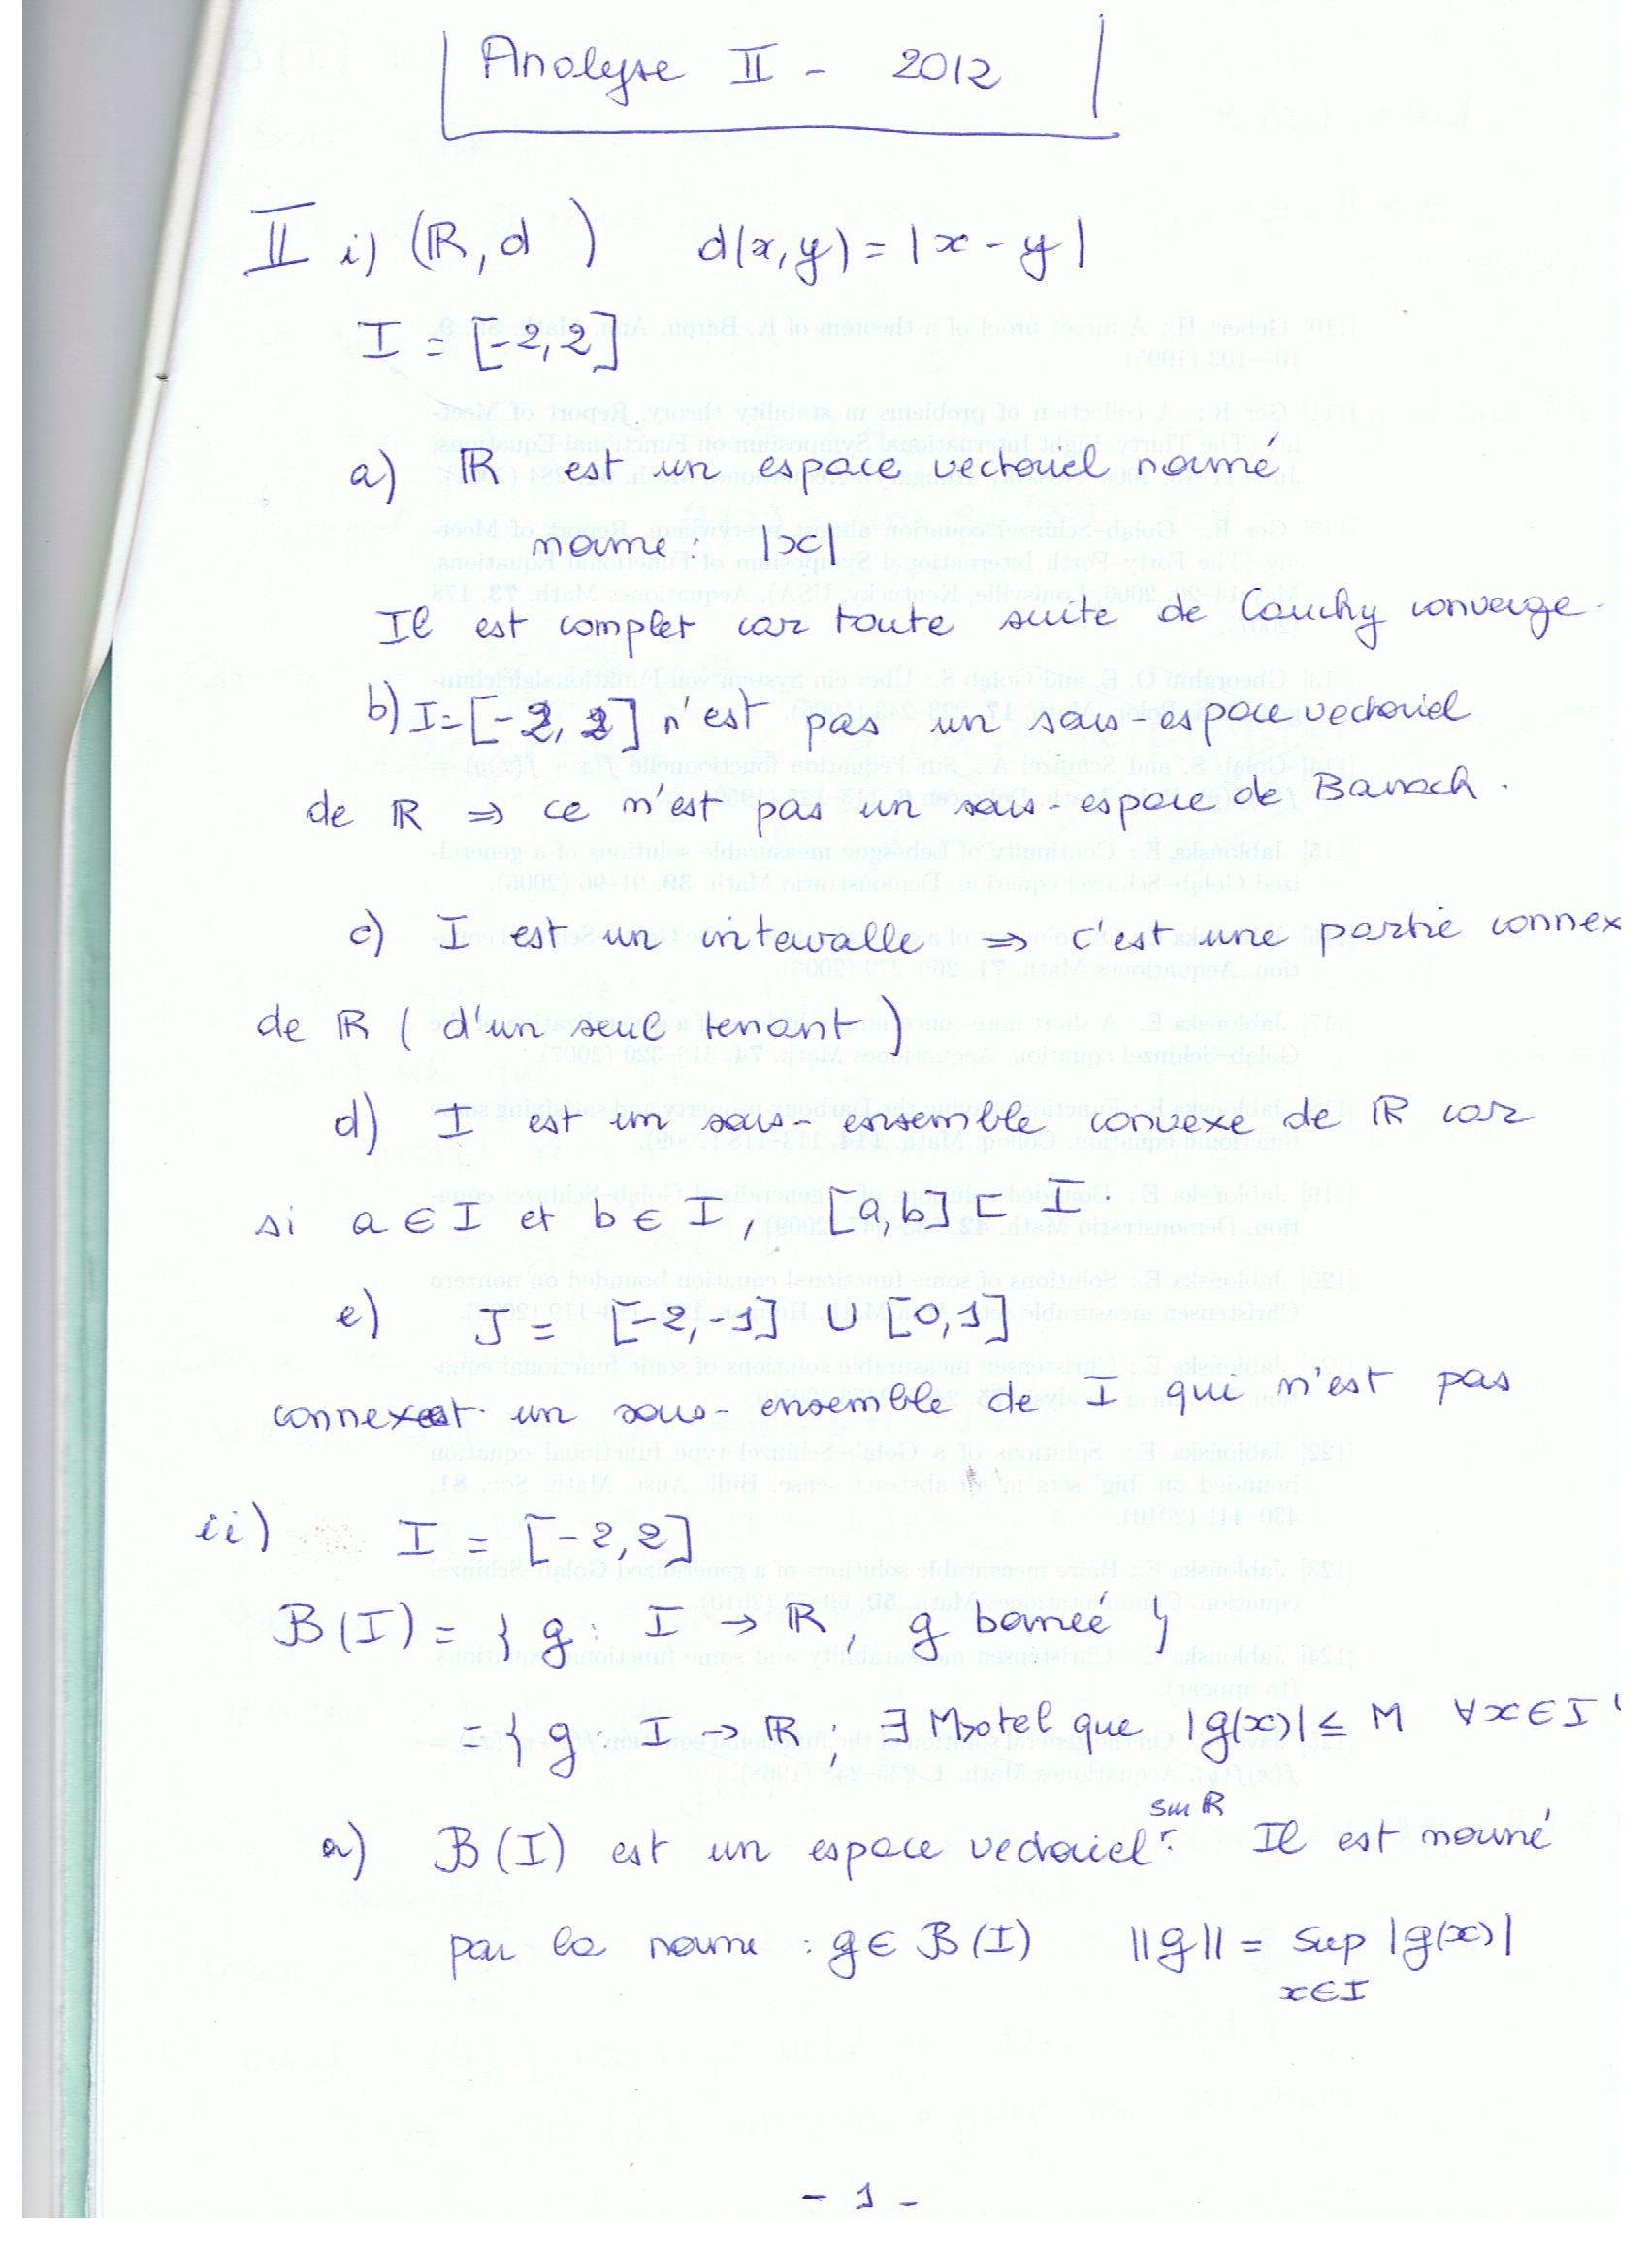 Analyse II - 2012
II i) (ℝ, d ) d(x,y) = |x - y|
I = [-2,2]
a) ℝ est un espace vectoriel normé
norme : |x|
Il est complet car toute suite de Cauchy converge.
b) I=[-2, 2] n'est pas un sous-espace vectoriel
de ℝ ⇒ ce n'est pas un sous-espace de Banach.
c) I est un intervalle ⇒ c'est une partie connex
de ℝ ( d'un seul tenant )
d) I est un sous-ensemble convexe de ℝ car
si a ∈ I et b ∈ I, [a,b] ⊂ I.
e) J = [-2,-1] ∪ [0,1]
connexe est un sous-ensemble de I qui n'est pas
ii) I = [-2,2]
B(I) = { g : I → ℝ, g bornée }
= { g : I → ℝ ; ∃ M>0 tel que |g(x)| ≤ M ∀x ∈ I
sur ℝ
a) B(I) est un espace vectoriel. Il est normé
par la norme : g ∈ B(I) ||g|| = sup |g(x)|
x∈I
- 1 -